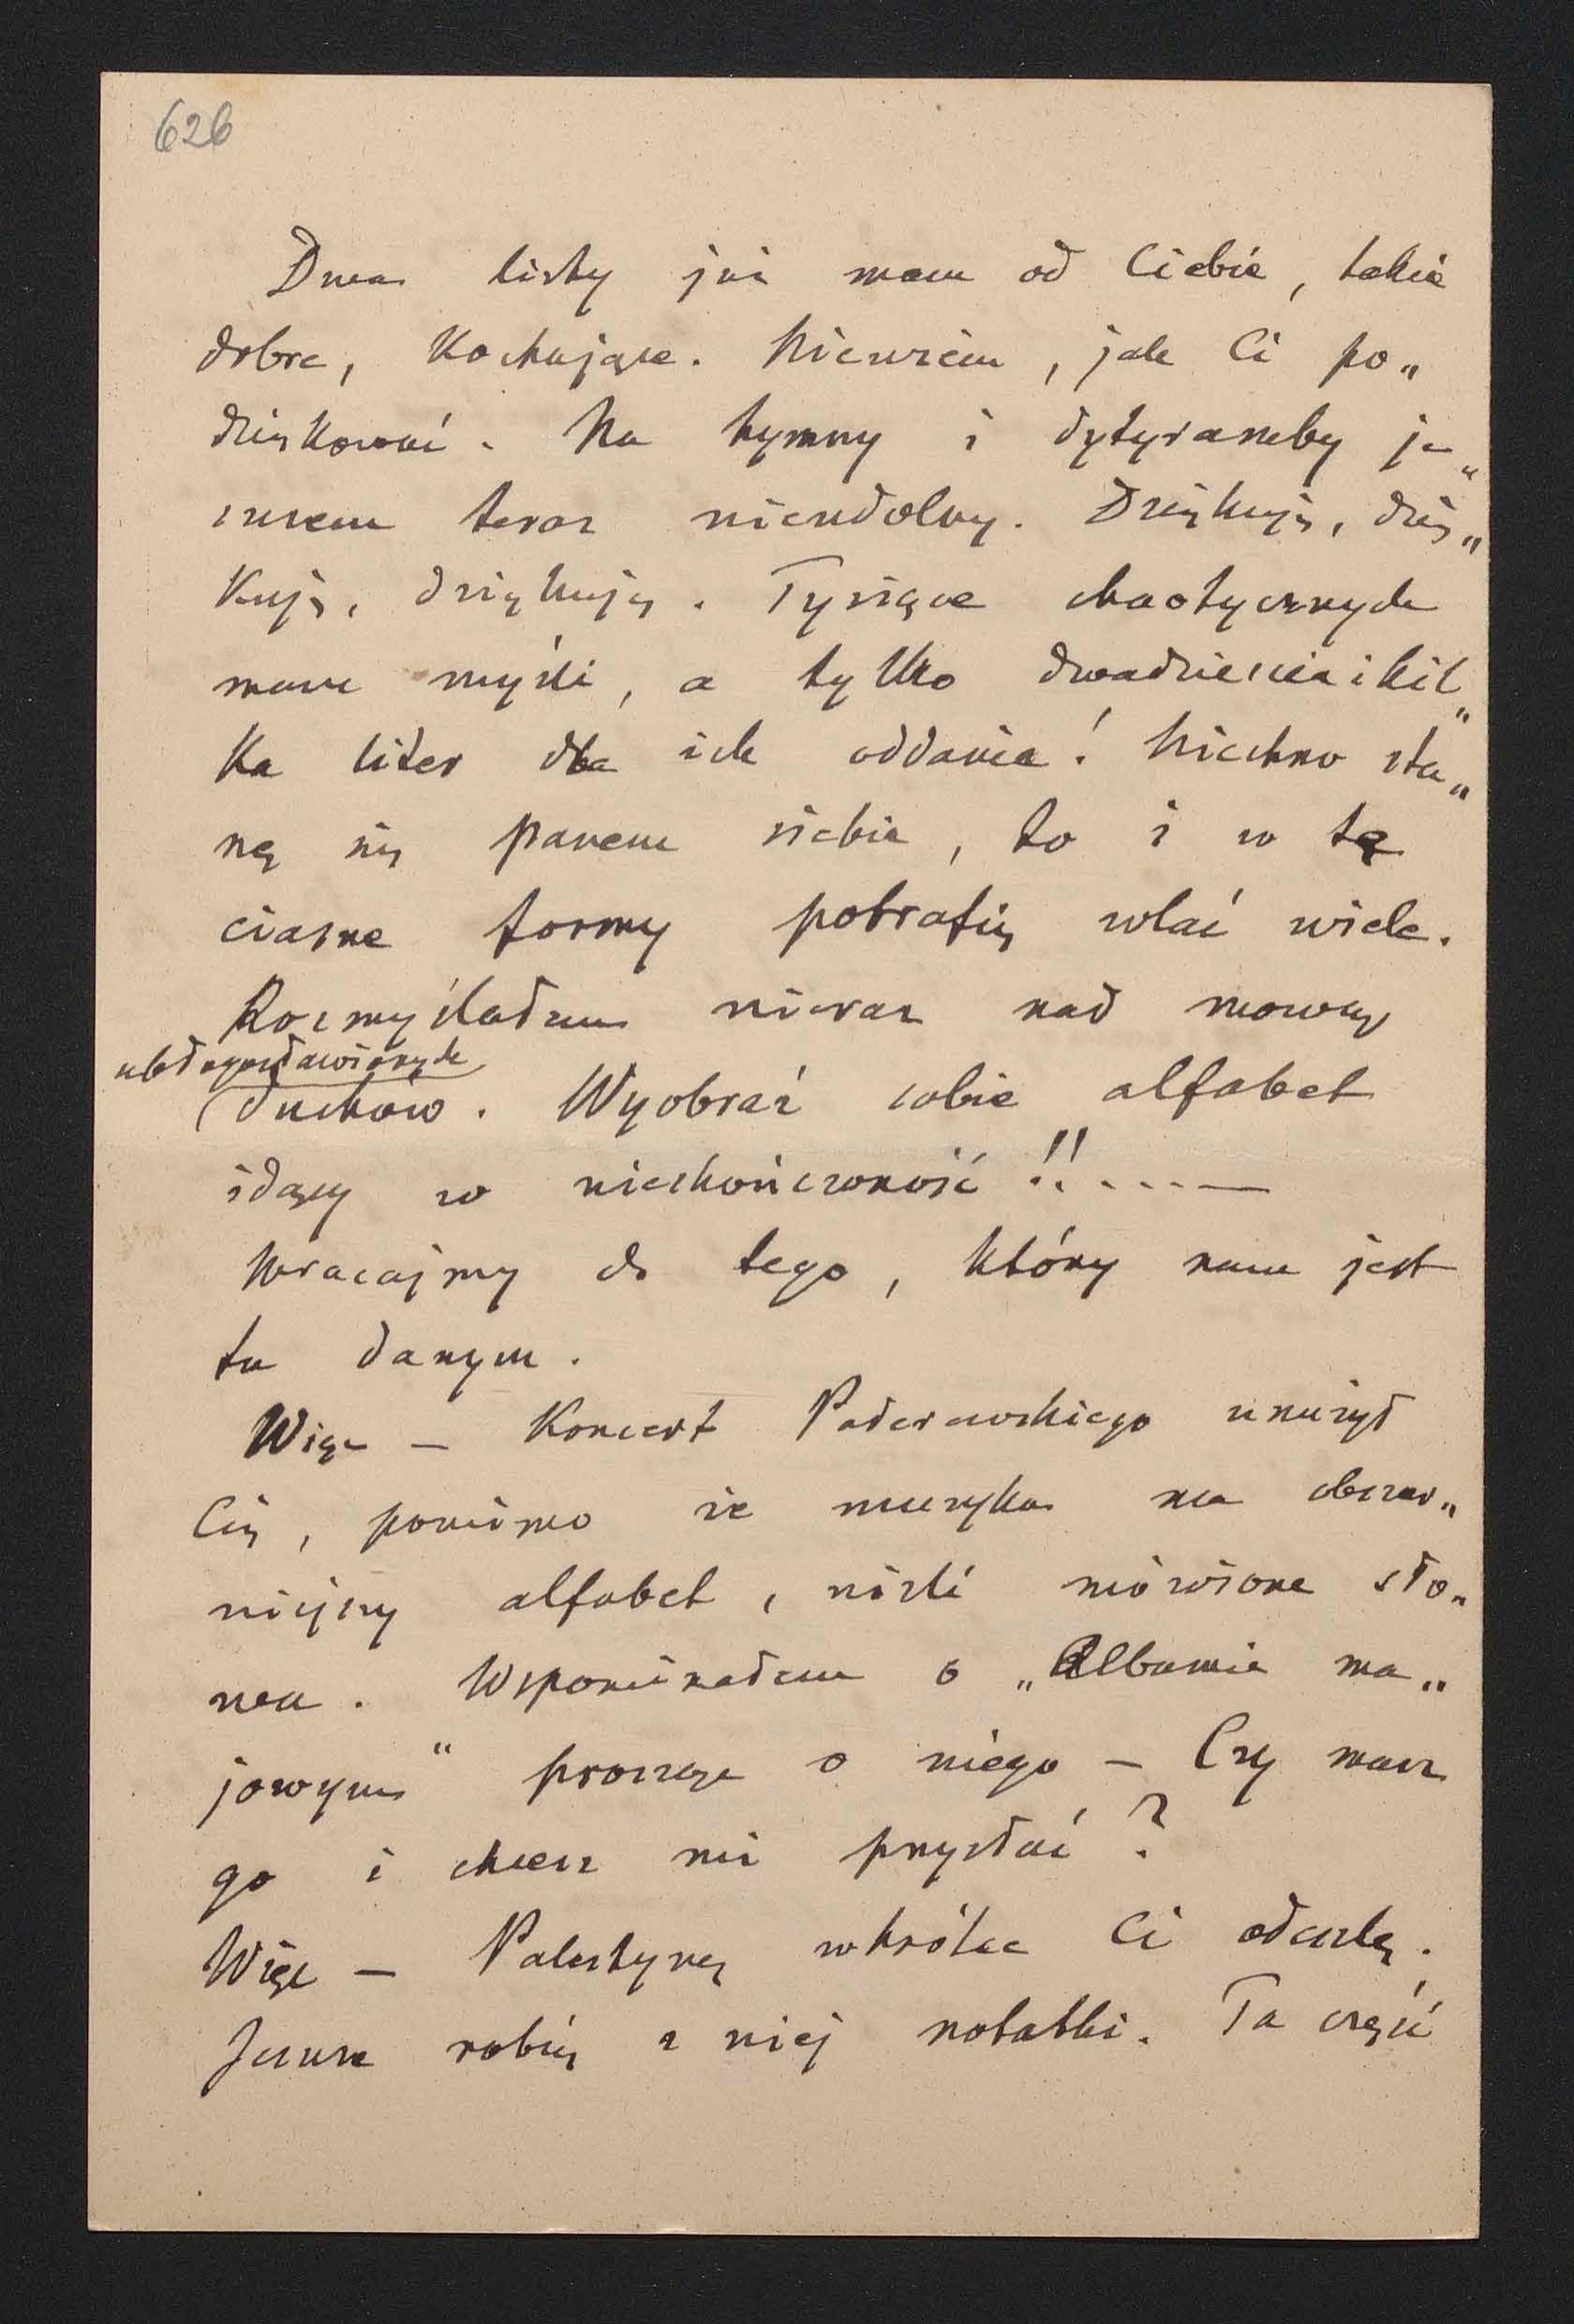 626
Dwa listy już mam od Ciebie, takie
dobre, kochające. Niewiem, jak Ci po„
dziękować. Na hymny i dytyramby je„
szczem teraz nieudolny. Dziękuję, dzię„
kuję, dziękuję. Tysiące chaotycznych
mam myśli, a tylko dwadzieścia i kil„
ka liter dla ich oddania! Niechno sta„
nę się panem siebie, to i w tę
ciasne formy potrafię wlać wiele.
Rozmyślałem nieraz nad mową
ubłogosławionych
(duchów. Wyobraź sobie alfabet
idący w nieskończoność!!....—
Wracajmy do tego, który nam jest
tu danym.
Więc — Koncert Paderewskiego znużył
Cię, pomimo że muzyka ma obszer„
niejszy alfabet, niźli mówione sło„
wa. Wspominałem o „Albumie ma„
jowym“ proszę o niego — Czy masz
go i chcesz mi przysłać?
Więc — Palestynę wkrótce Ci odeszlę.
Jeszcze robię z niej notatki. Ta część